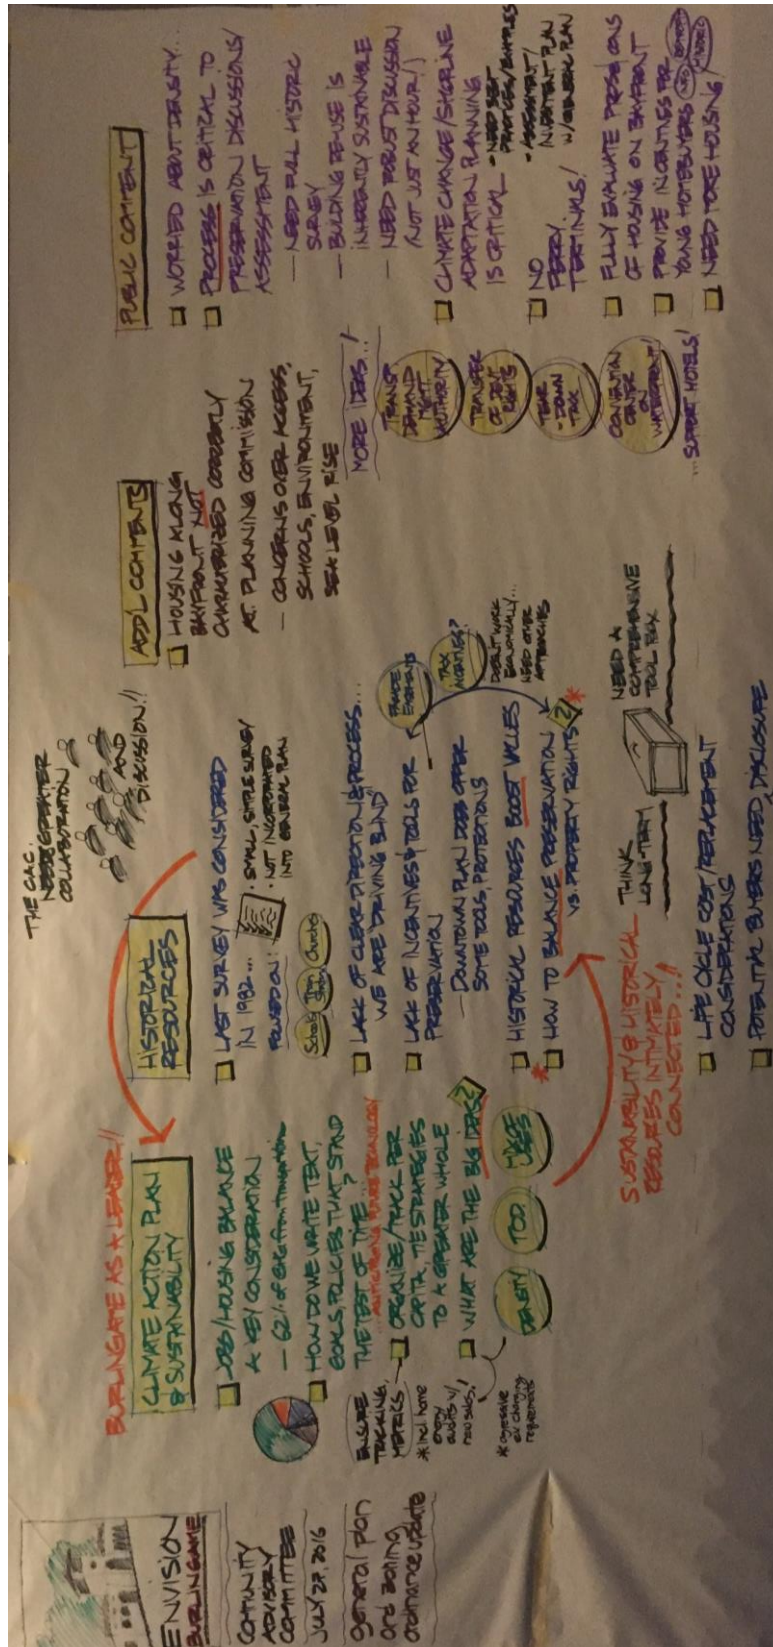 ENVISION
BURLINGAME
COMMUNITY
ADVISORY
COMMITTEE
JULY 27, 2016
general plan
and zoning
ordinance update
BURLINGAME AS A LEADER!!
CLIMATE ACTION PLAN
& SUSTAINABILITY
JOBS/HOUSING BALANCE
A KEY CONSIDERATION
— 62% of GHGs from transportation
HOW DO WE WRITE TEXT,
GOALS, POLICIES THAT STAND
THE TEST OF TIME...?
...ANTICIPATING FUTURE TECHNOLOGY
ORGANIZE/TRACK PER
CAPITA, TIE STRATEGIES
TO A GREATER WHOLE
ENSURE
TRACKING,
METRICS
* incl home
energy
audits w/
new sales!
WHAT ARE THE BIG IDEAS?
* aggressive
EV charging
requirements
DENSITY
TOD
MIXED
USES
THE CAC
NEEDS GREATER
COLLABORATION
AND
DISCUSSION!!
HISTORICAL
RESOURCES
LAST SURVEY WAS CONSIDERED
IN 1982...
• SMALL, SIMPLE SURVEY
• NOT INCORPORATED
INTO GENERAL PLAN
FOCUSED ON:
Schools
Train
Station
Churches
LACK OF CLEAR DIRECTION & PROCESS...
WE ARE "DRIVING BLIND"
LACK OF INCENTIVES & TOOLS FOR
PRESERVATION
— DOWNTOWN PLAN DOES OFFER
SOME TOOLS, PROTECTIONS
FACADE
EASEMENTS
TAX
INCENTIVES?
DOESN'T WORK
ECONOMICALLY...
NEED OTHER
APPROACHES
HISTORICAL RESOURCES BOOST VALUES
* HOW TO BALANCE PRESERVATION
VS. PROPERTY RIGHTS? *
SUSTAINABILITY & HISTORICAL
RESOURCES INTIMATELY
CONNECTED...!!
THINK
LONG-TERM
NEED A
COMPREHENSIVE
TOOL BOX
LIFE CYCLE COST/REPLACEMENT
CONSIDERATIONS
POTENTIAL BUYERS NEED DISCLOSURE
ADD'L COMMENTS
HOUSING ALONG
BAYFRONT NOT
CHARACTERIZED CORRECTLY
AT PLANNING COMMISSION
— CONCERNS OVER ACCESS,
SCHOOLS, ENVIRONMENT,
SEA LEVEL RISE
MORE IDEAS...!
TRANSP.
DEMAND
MGMT
AUTHORITY
TRANSFER
OF DEV'T
RIGHTS
TEAR
-DOWN
TAX
CONVENTION
CENTER
ON
WATERFRONT!
...SUPPORT HOTELS!
PUBLIC COMMENT
WORRIED ABOUT DENSITY...
PROCESS IS CRITICAL TO
PRESERVATION DISCUSSIONS/
ASSESSMENT
— NEED FULL HISTORIC
SURVEY
— BUILDING RE-USE IS
INHERENTLY SUSTAINABLE
— NEED ROBUST DISCUSSION
(NOT JUST AN HOUR!)
CLIMATE CHANGE/SHORELINE
ADAPTATION PLANNING
IS CRITICAL
• NEED BEST
PRACTICES/EXAMPLES
• ASSESSMENT/
INVESTMENT PLAN
W/GENERAL PLAN
NO
FERRY
TERMINALS!
FULLY EVALUATE PROS/CONS
OF HOUSING ON BAYFRONT
PROVIDE INCENTIVES FOR
YOUNG HOMEBUYERS
NEED MORE HOUSING/